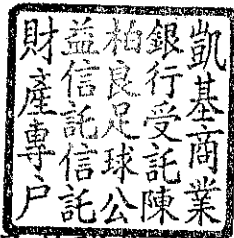 凱基商業
銀行受託陳
柏良足球公
益信託信託
財產專戶